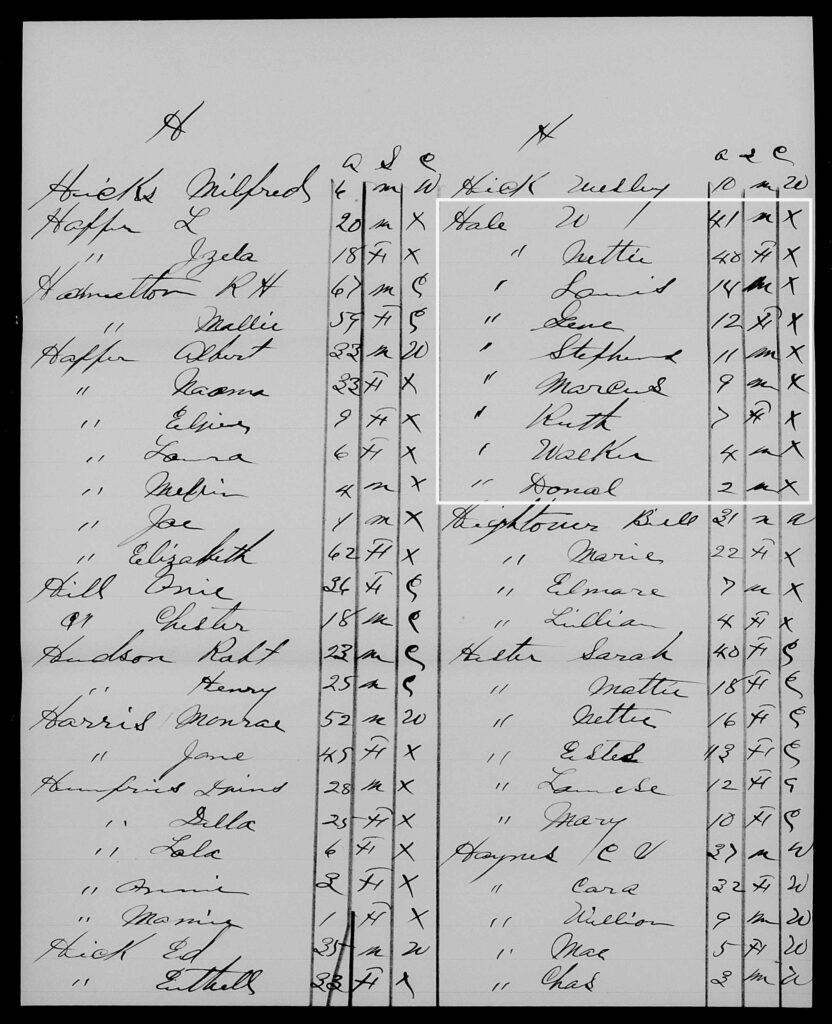 H
a S C
Hicks Milfred 6 m W
Haffer L 20 m X
" Izela 18 F X
Hamelton R H 67 m C
" Mallie 59 F C
Haffer Albert 33 m W
" Naoma 33 F X
" 9 F X
" Laura 6 F X
" Melvin 4 m X
" Joe m X
" Elizabeth 62 F X
Hill Onie 36 F C
" Chester 18 m C
Hudson Robt 23 m C
" Henry 25 m C
Harris Monroe 52 m W
" Jane 45 F X
Humfries 28 m X
" Della 25 F X
" Lola 6 F X
" Annie 3 F X
" 1 F X
Hick Ed 35 m W
" 33 F X
H
a S C
Hick Wesley 10 m W
Hale W 41 m X
" Nettie 40 F X
" Lewis 14 m X
" Gene 12 F X
" Stephens 11 m X
" Marcus 9 m X
" Ruth 7 F X
" Walker 4 m X
" Donal 2 m X
Hightower Bill 31 m W
" Marie 22 F X
" Elmore 7 m X
" Lillian 4 F X
Hester Sarah 40 F C
" Mattie 18 F C
" Nettie 16 F C
" Estes 13 F C
" 12 F C
" Mary 10 F C
Haynes C V 37 m W
" Cora 32 F W
" William 9 m W
" Mae 5 F W
" Chas 3 m W